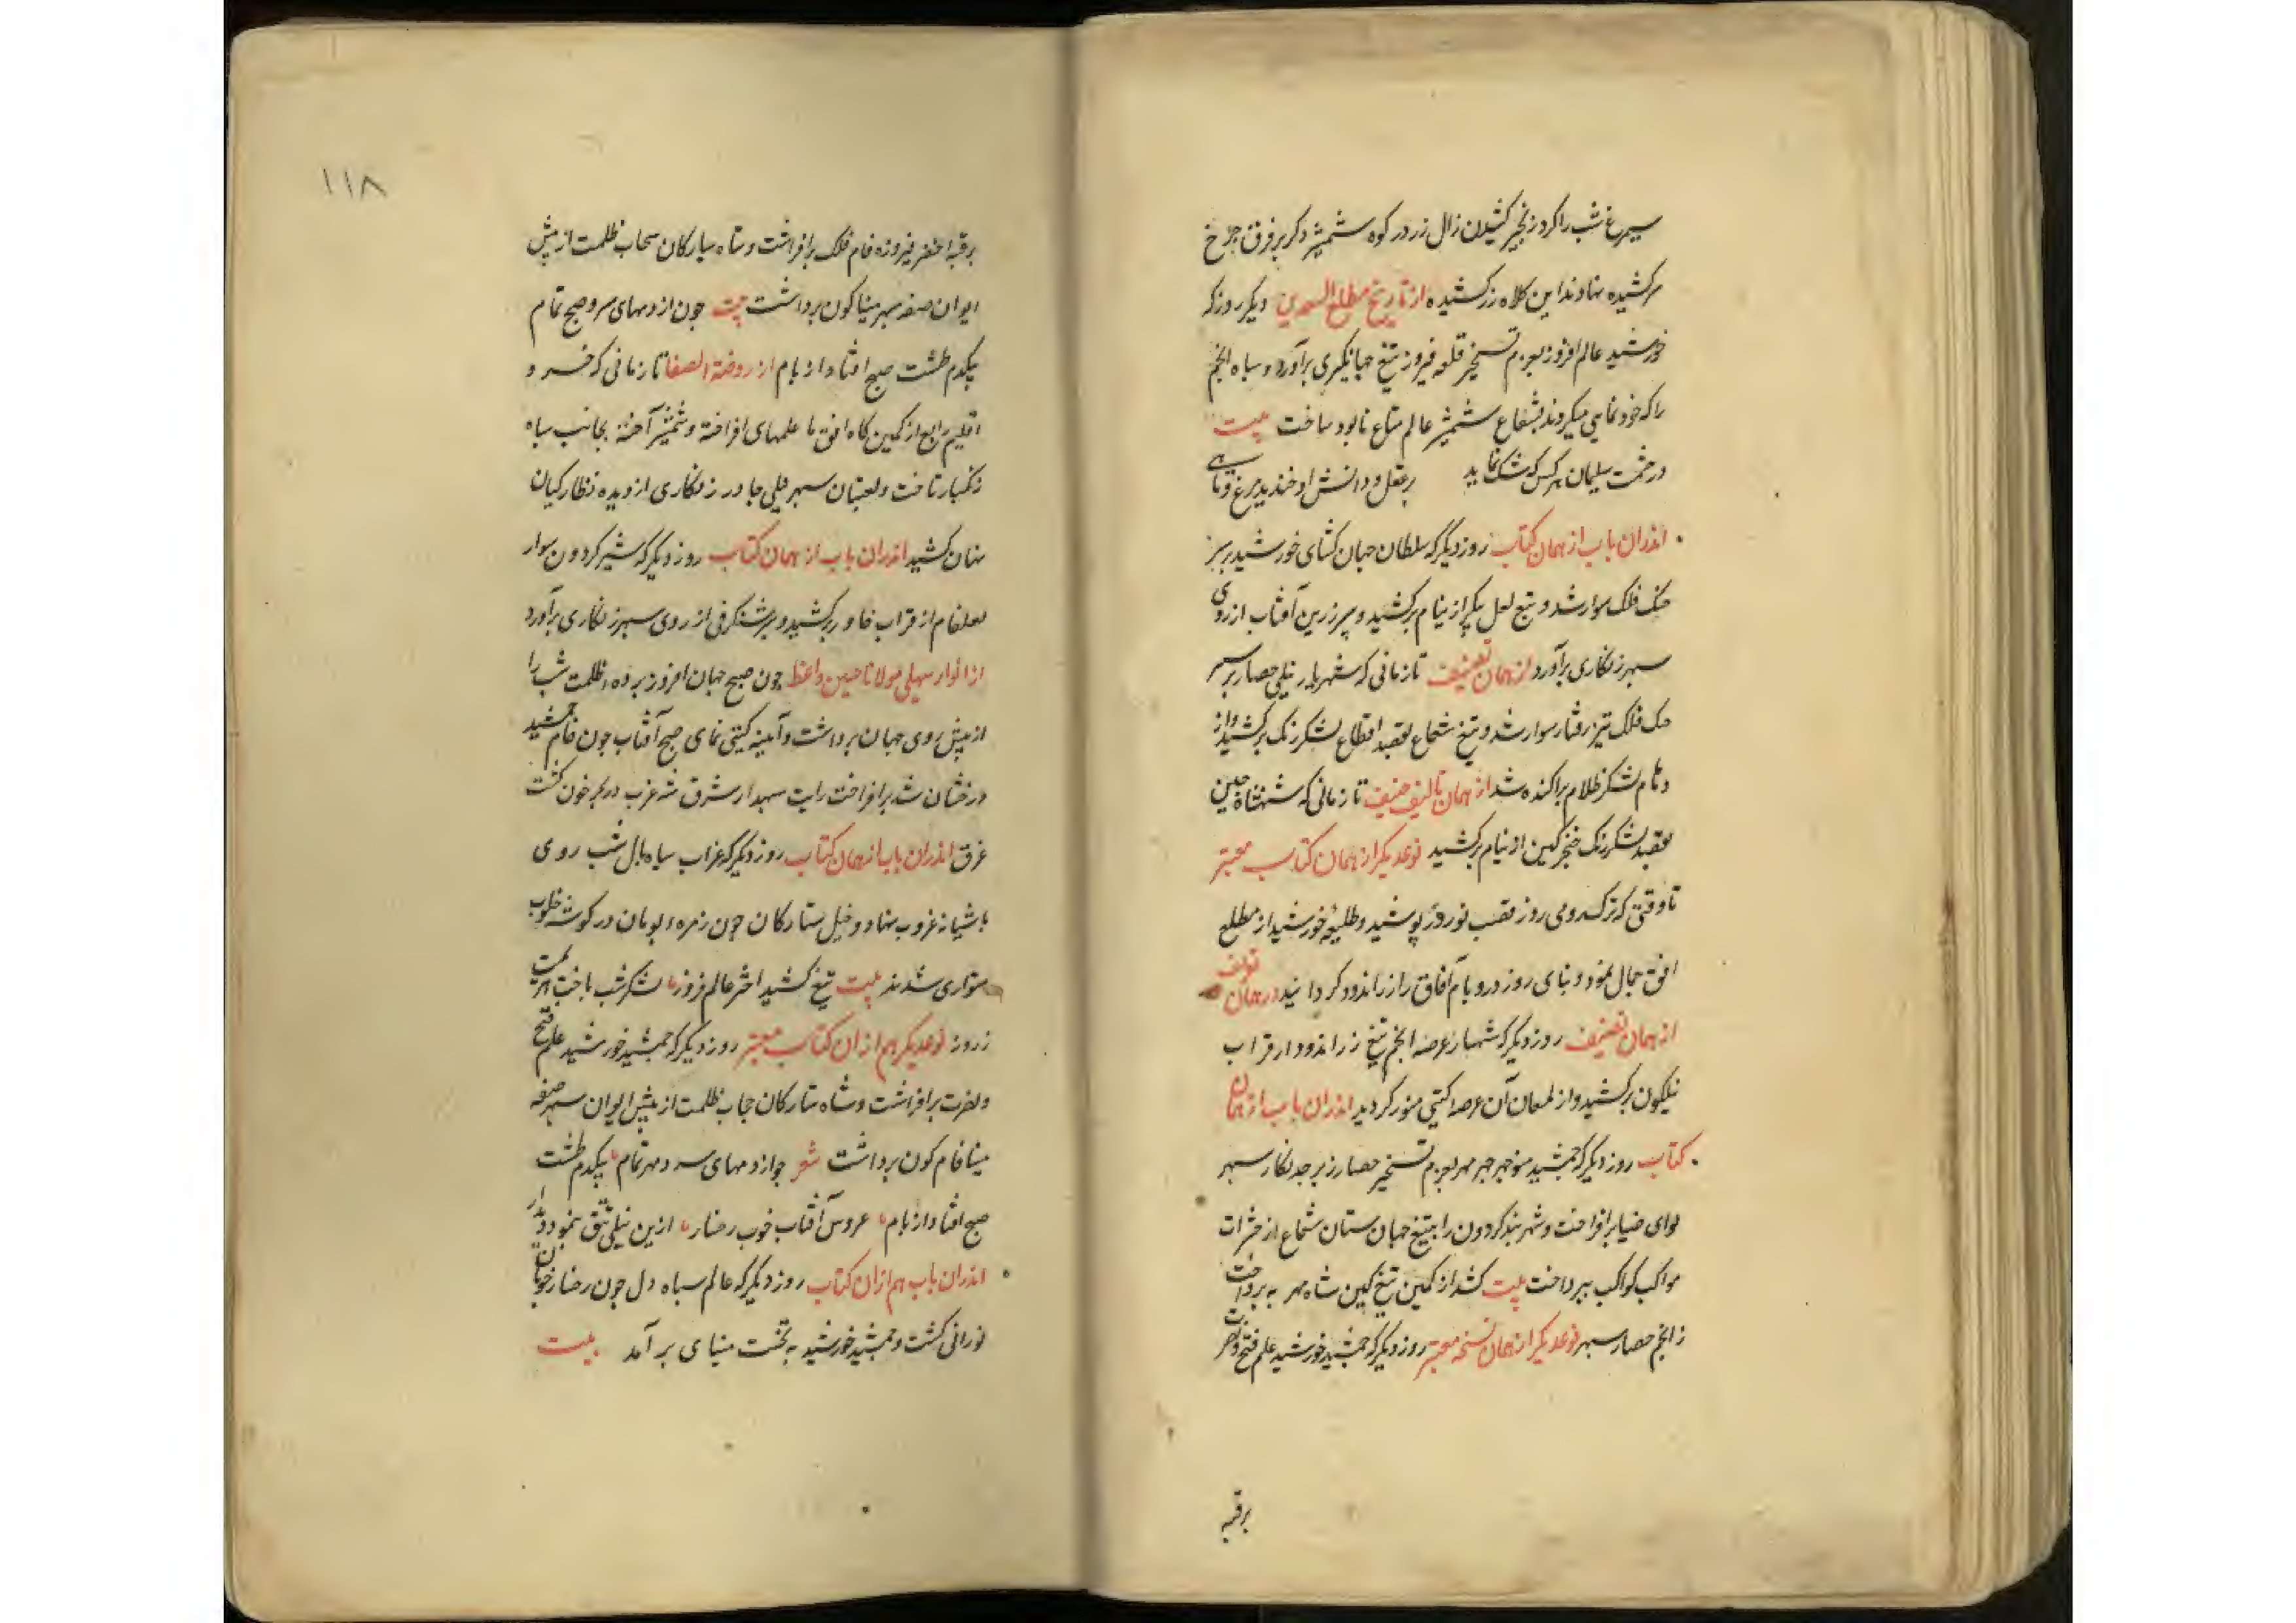 سیمرغ شب را کرد زنجیر کشیدن زال زر در کوه شمشیر دکر بر فرق چرخ
سرکشیده نهادند این کلاه زرکشیده از تاریخ مطلع السعدین دیکر روز که
خورشید عالم افروز بعزم تسخیر قلعه فیروز تیغ جهانکیری برآورد و سپاه انجم
را که خود نمایی میکردند بشعاع شمشیر عالم متاع نابود ساخت بیت
در حشمت سلیمان هر کس که شک نماید بر عقل و دانش او خندید مرغ و ماهی
اندران باب از همان کتاب روز دیگر که سلطان جهان کشای خورشید بر سبز
خنک فلک سوار شد و تیغ لعل پیکر از نیام برکشید و سپر زرین آفتاب از روی
سپهر زنکاری برآورد از همان تصنیف تا زمانی که شهریار نیلی حصار بر سبز
خنک فلک تیز رفتار سوار شد و تیغ شعاع بقصد اقطاع لشکر زنک برکشید و از
دمام لشکر ظلام پراکنده شد از همان تالیف حنیف تا زمانی که شهنشاه چین
بقصد لشکر زنک خنجر کین از نیام برکشید نوعدیکر از همان کتاب معتبر
تا وقتی که ترک رومی روز قصب نور در پوشید و طلیعه خورشید از مطلع
افق جمال نمود و بنای روز در و بام آفاق را زر اندود کردانید در همان تولف
از همان تصنیف روز دیکر که شهسار عرصه انجم تیغ زر اندود از قراب
نیلکون برکشید و از لمعان آن عرصه کیتی منور کردید اندران باب از همان
کتاب روز دیکر که جمشید منوچهر چهر مهر بعزم تسخیر حصار زبرجد نکار سپهر
لوای ضیا برافراخت و شهر بند کردون را بتیغ جهان ستان شعاع از حشرات
مواکب کواکب بپرداخت بیت کشد از کمین تیغ کین شاه مهر بپرداخت
ز انجم حصار سپهر نوعدیکر از همان نسخه معتبر روز دیکر که جمشید خورشید علم فتح و نصرت
برقبه
۱۱۸
برقبه اخضر فیروزه فام فلک برافراشت و شاه سیارکان سحاب ظلمت از پیش
ایوان صفه سپهر مینا کون برداشت بیت چون از دمهای سرد صبح تمام
بیکدم طشت صبح افتاد از بام از روضة الصفا تا زمانی که خسرو
اقلیم رابع از کمین کاه افق با علمهای افراخته و شمشیر آخته بجانب سپاه
زنکبار تاخت و لعبتان سپهر نیلی چادر زنکاری از دیده نظارکیان
نهان کشید اندران باب از همان کتاب روز دیکر که شیر کردون سوار
لعلفام از قراب خاور برکشید و سر شنکرفی از روی سپهر زنکاری برآورد
از انوار سهیلی مولانا حسین واعظ چون صبح جهان افروز پرده ظلمت شب را
از پیش روی جهان برداشت و آیینه کیتی نمای صبح آفتاب چون جام جمشید
درخشان شد برافراخت رایت سپهدار شرق شه غرب در بحر خون کشت
غرق اندران باب از همان کتاب روز دیکر که غراب سیاه بال شب روی
باشیانه غروب نهاد و خیل ستارکان چون زمره بومان در کوشه خلوت
متواری شدند بیت تیغ کشید اختر عالم فروز لشکر شب باخت هزیمت
ز روز نوعدیکر هم از ان کتاب معتبر روز دیکر که جمشید خورشید علم فتح
و نصرت برافراشت و شاه ستارکان حجاب ظلمت از پیش ایوان سپهر صفه
مینا فام کون برداشت شعر چو از دمهای سرد مهر تمام بیکدم طشت
صبح افتاد از بام عروس آفتاب خوب رخسار ازین نیلی تتق بنمود دیدار
اندران باب هم از ان کتاب روز دیکر که عالم سیاه دل چون رخسار خوبان
نورانی کشت و جمشید خورشید به تخت مینای برآمد بیت